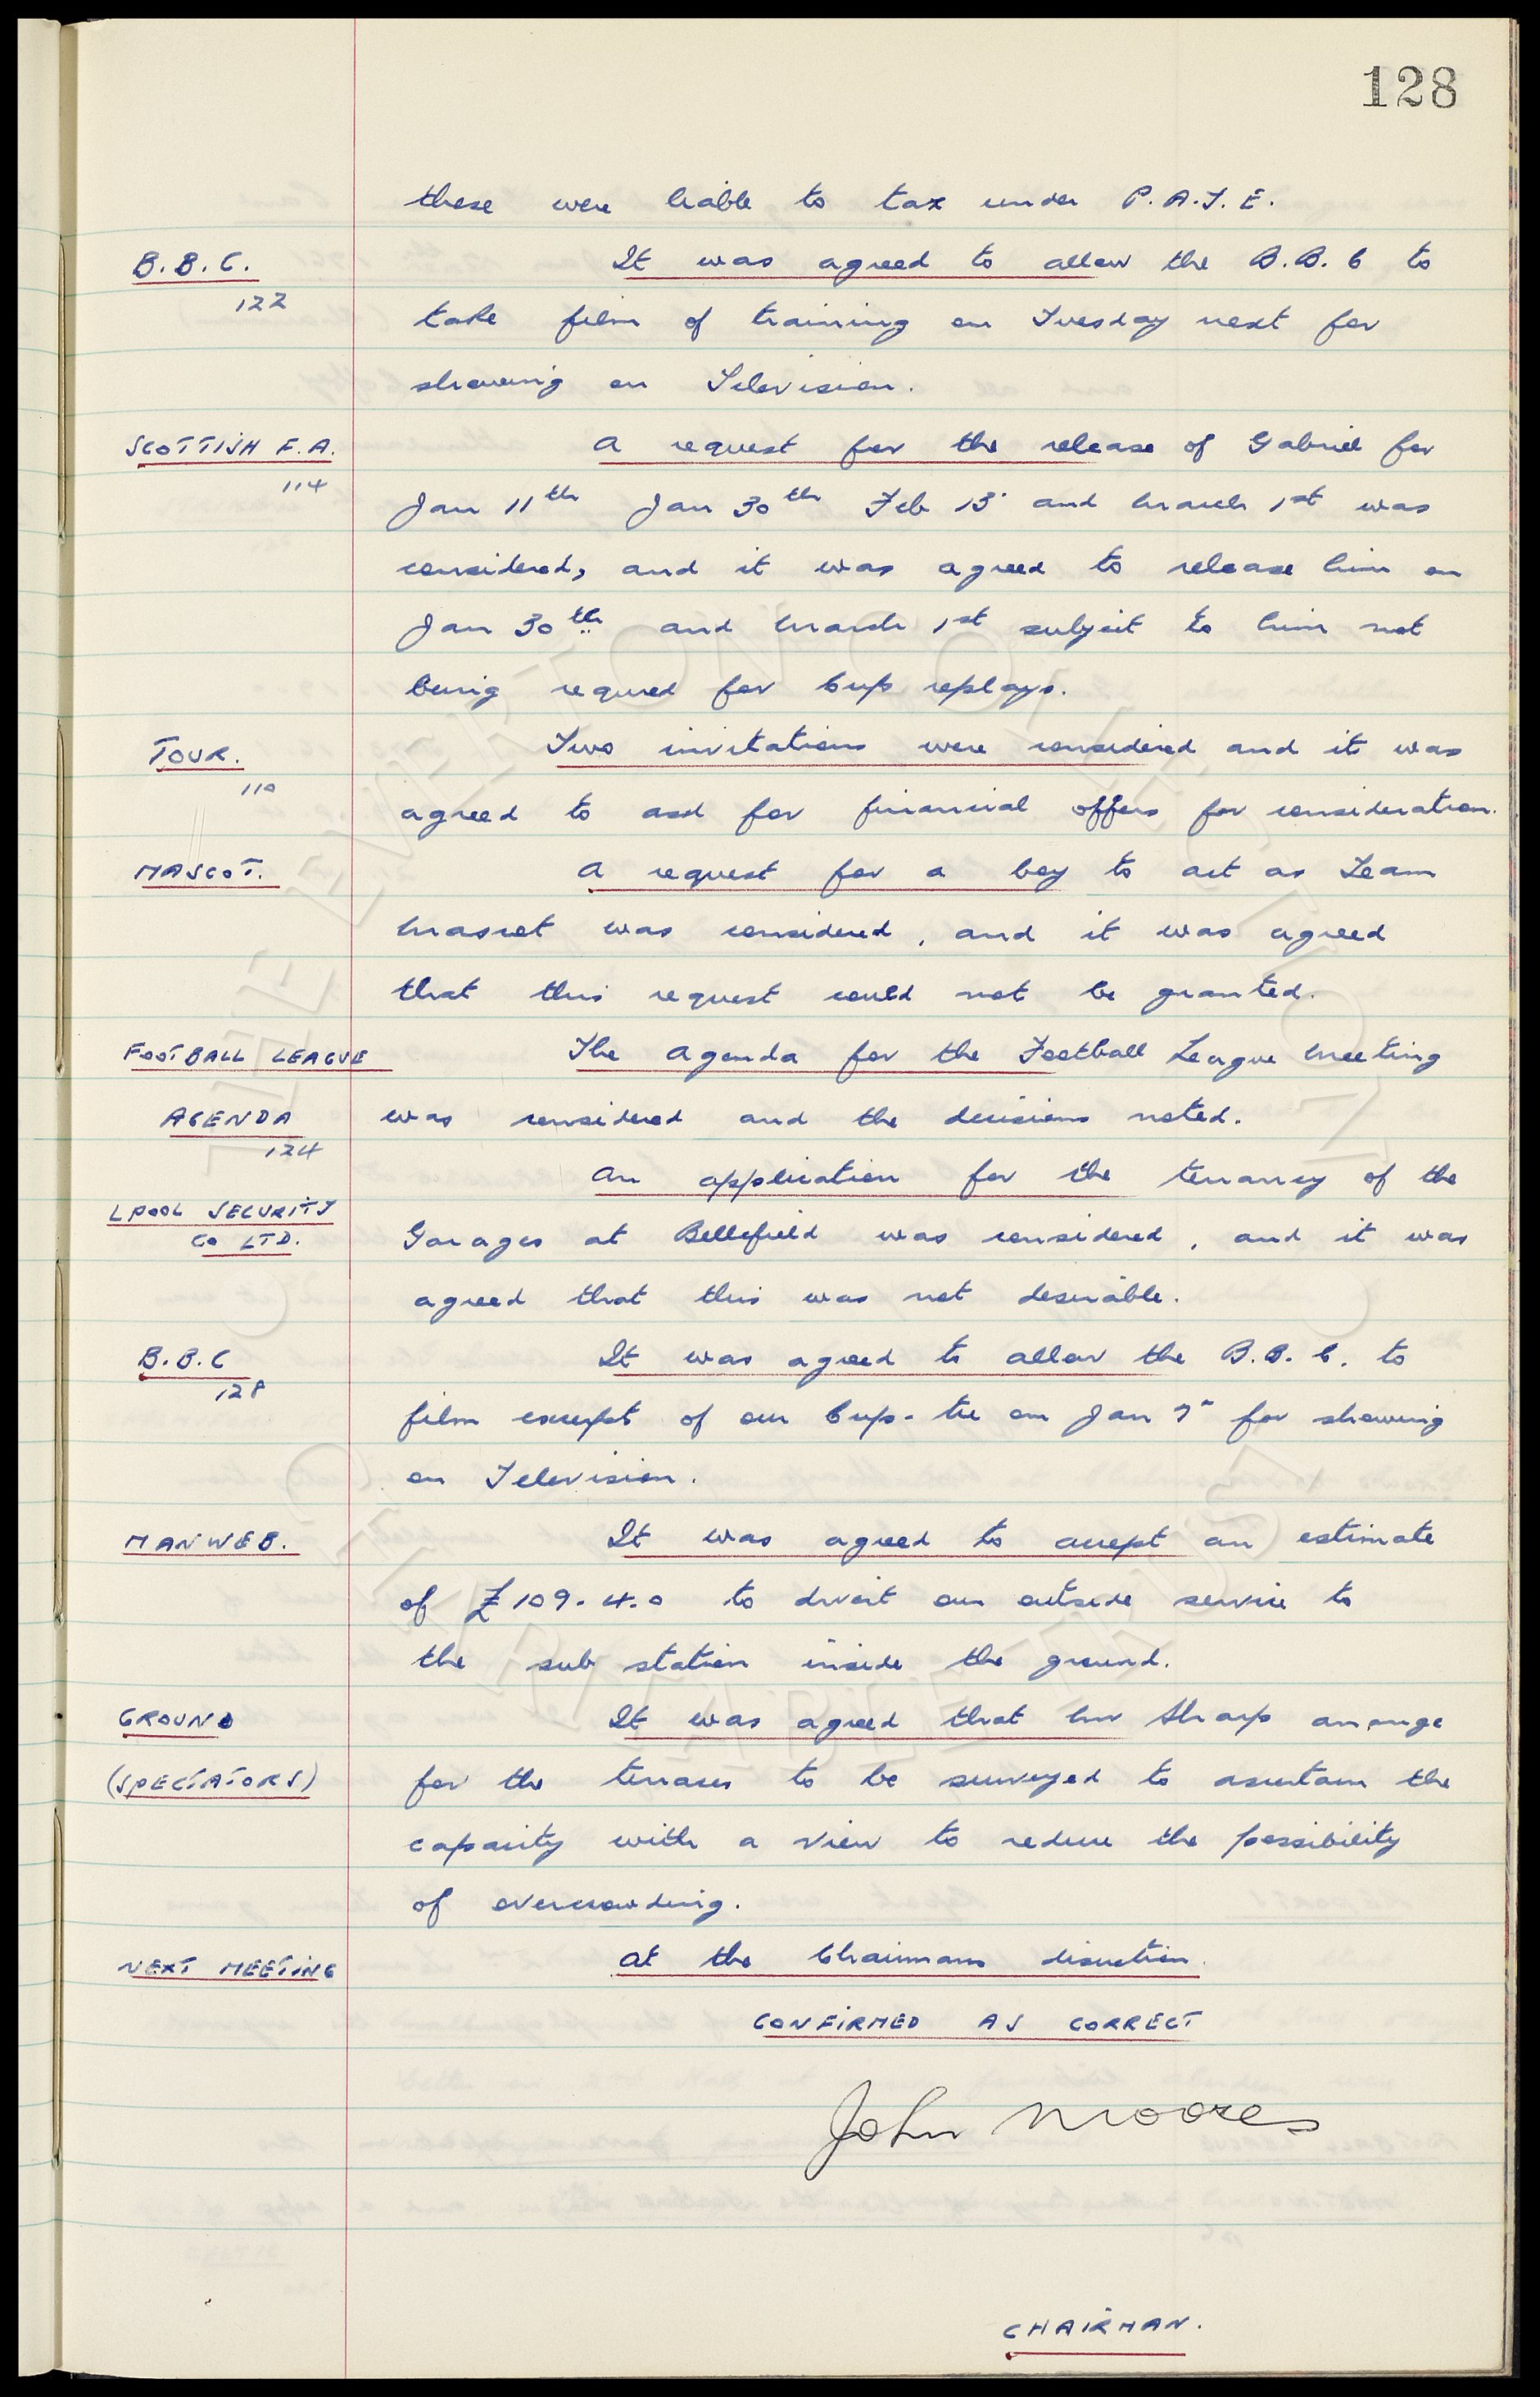 128
these were liable to tax under P.A.Y.E.
B.B.C.
122
It was agreed to allow the B.B.C to
take film of training on Tuesday next for
showing on Television.
SCOTTISH F.A.
114
A request for the release of Gabriel for
Jan 11th Jan 30th Feb 13 and March 1st was
considered, and it was agreed to release him on
Jan 30th and March 1st subject to him not
being requred for Cup replays.
TOUR.
110
Two invitations were considered and it was
agreed to ask for financial offers for consideration.
MASCOT.
A request for a boy to act as Team
Mascot was considered, and it was agreed
that this request could not be granted.
FOOTBALL LEAGUE
AGENDA
124
The Agenda for the Football League Meeting
was considered and the decisions noted.
LPOOL SECURITY
CO LTD.
An application for the tenancy of the
Garages at Bellefield was considered, and it was
agreed that this was not desirable.
B.B.C
128
It was agreed to allow the B.B.C. to
film excerpt of our Cup-tie on Jan 7 for showing
on Television.
MANWEB.
It was agreed to accept an estimate
of £109.4.0 to divert our outside service to
the sub station inside the ground.
GROUND
(SPECTATORS)
It was agreed that Mr Sharp arrange
for the terraces to be surveyed to ascertain the
capacity with a view to reduce the possibility
of overcrowding.
NEXT MEETING
At the Chairmans discretion.
CONFIRMED AS CORRECT
John Moores
CHAIRMAN.